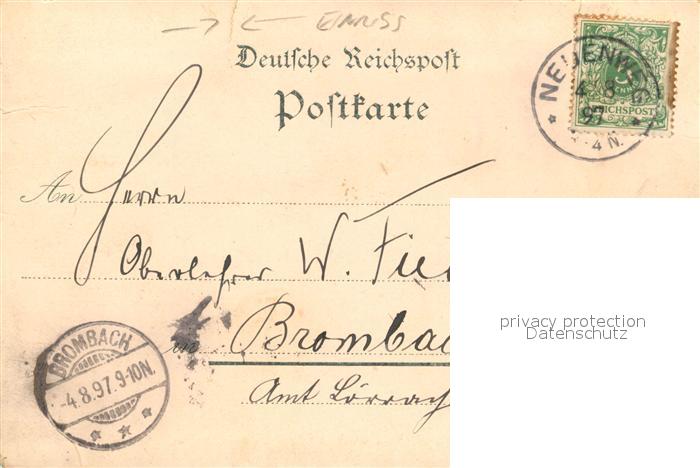 EINRISS
Deutsche Reichspost
Postkarte
NEUENWEG
4 8
97
REICHSPOST
4 N.
An Herrn
Oberlehrer W.
in Bromba
Amt Lörrach
BROMBACH
-4.8.97.9-10N.
privacy protection
Datenschutz